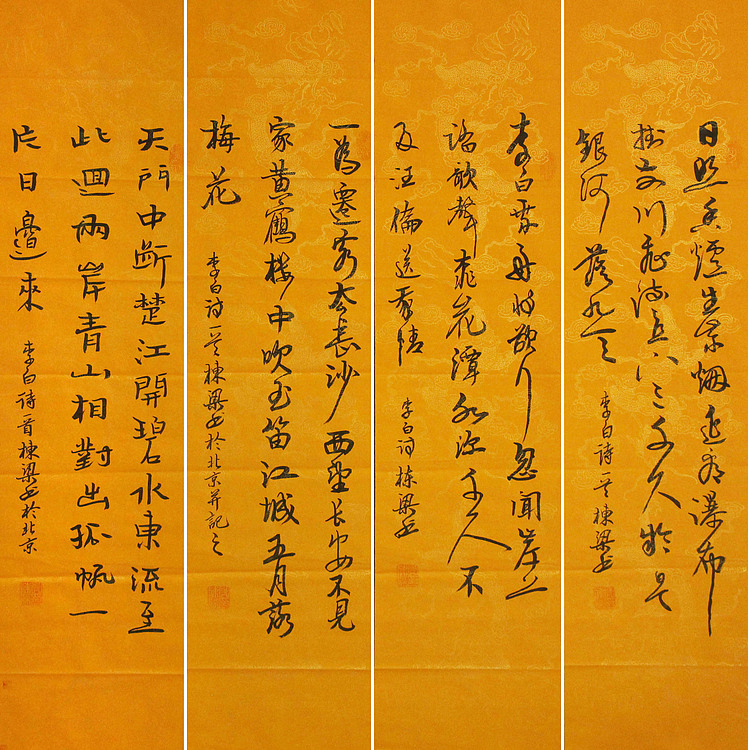 日照香爐生紫烟遥看瀑布
掛前川飛流直下三千尺疑是
銀河落九天
李白诗一首棟梁书
李白乘舟将欲行忽聞岸上
踏歌聲桃花潭水深千尺不
及汪倫送我情
李白诗棟梁书
一為遷客去長沙西望長安不見
家黄鶴楼中吹玉笛江城五月落
梅花
李白诗一首棟梁书於北京并記之
天門中断楚江開碧水東流至
此迴两岸青山相對出孤帆一
片日邊來
李白诗首棟梁书於北京